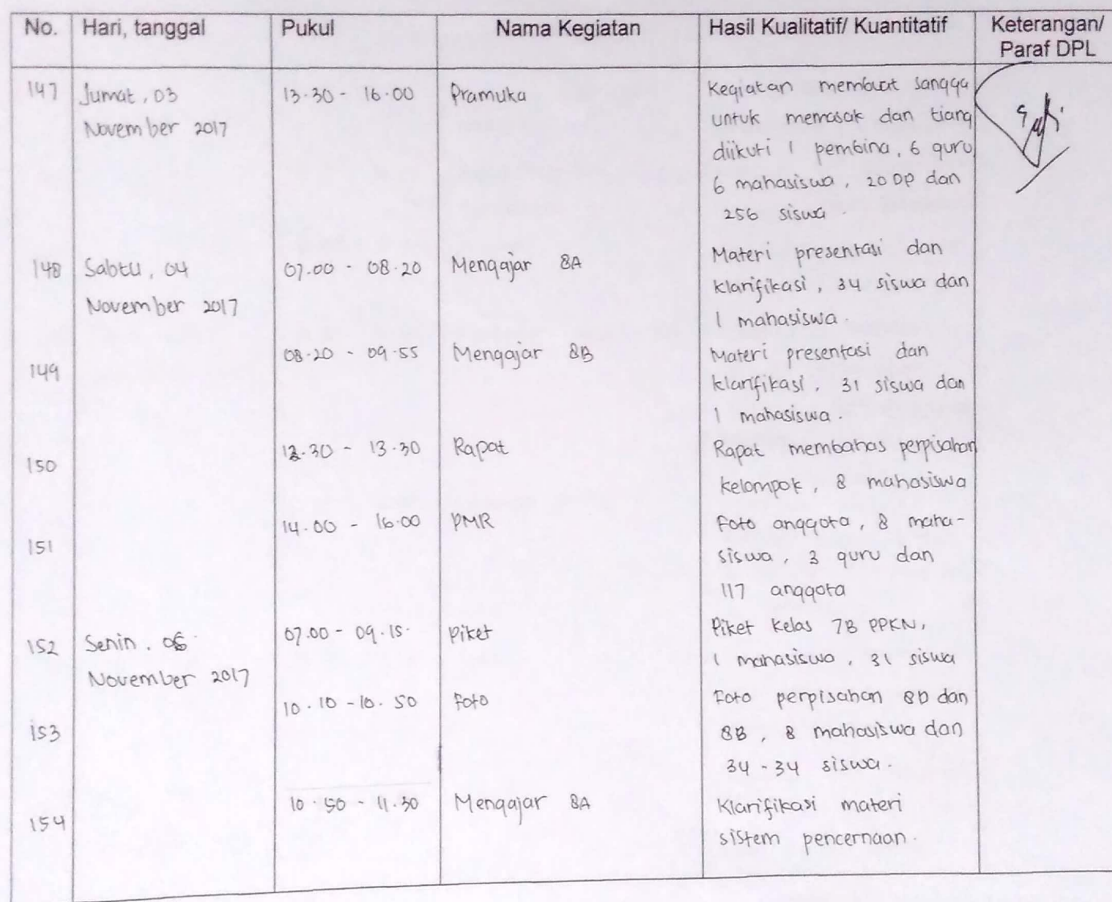 No. Hari, tanggal Pukul Nama Kegiatan Hasil Kualitatif/ Kuantitatif Keterangan/
Paraf DPL
147 Jumat, 03 13.30 - 16.00 Pramuka Kegiatan membuat sangga
November 2017 untuk memasak dan tiang
diikuti 1 pembina, 6 guru
6 mahasiswa, 20 DP dan
256 siswa.
148 Sabtu, 04 07.00 - 08.20 Mengajar 8A Materi presentasi dan
November 2017 klarifikasi, 34 siswa dan
1 mahasiswa.
149 08.20 - 09.55 Mengajar 8B Materi presentasi dan
klarifikasi, 31 siswa dan
1 mahasiswa.
150 12.30 - 13.30 Rapat Rapat membahas perpisahan
kelompok, 8 mahasiswa
151 14.00 - 16.00 PMR Foto anggota, 8 maha-
siswa, 3 guru dan
117 anggota
152 Senin, 06 07.00 - 09.15. Piket Piket kelas 7B PPKN,
November 2017 1 mahasiswa, 31 siswa
153 10.10 - 10.50 Foto Foto perpisahan 8D dan
8B, 8 mahasiswa dan
34 - 34 siswa.
154 10.50 - 11.30 Mengajar 8A Klarifikasi materi
sistem pencernaan.